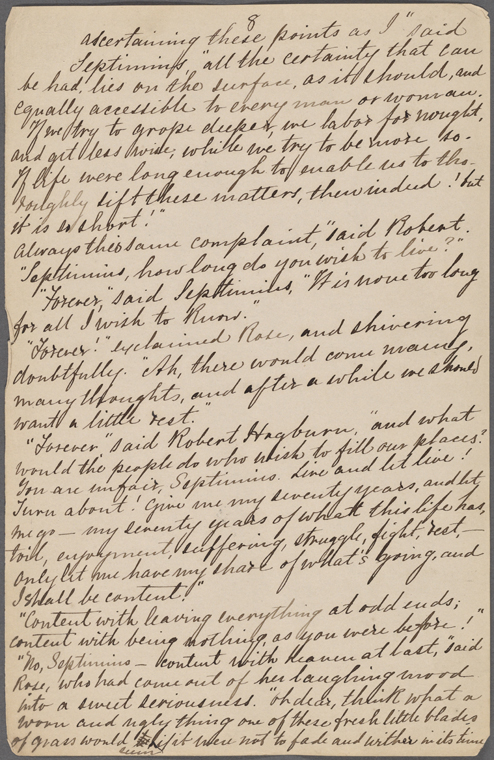 8
ascertaining these points as I" said
Septimius, "all the certainty that can
be had, lies on the surface, as it should, and
equally accessible to every man or woman.
If we try to grope deeper, we labor for nought,
and get less wise, while we try to be more so.
If life were long enough to enable us to tho-
roughly sift these matters, then indeed! but
it is so short!"
Always the same complaint," said Robert.
"Septimius, how long do you wish to live?"
"Forever," said Septimius, "It is none too long
for all I wish to know."
"Forever!" exclaimed Rose, and shivering
doubtfully. "Ah, there would come many,
many thoughts, and after a while we should
want a little rest."
"Forever," said Robert Hagburn, "and what
would the people do who wish to fill our places?
You are unfair, Septimius. Live and let live!
Turn about! Give me my seventy years, and let
me go — my seventy years of what this life has,
toil, enjoyment, suffering, struggle, fight, rest, —
only let me have my share of what's going, and
I shall be content."
"Content with leaving everything at odd ends;
content with being nothing, as you were before!"
"No, Septimius — content with heaven at last," said
Rose, who had come out of her laughing mood
into a sweet seriousness. "oh dear, think what a
worn and ugly thing one of these fresh little blades
of grass would if it were not to fade and wither in its time
seem